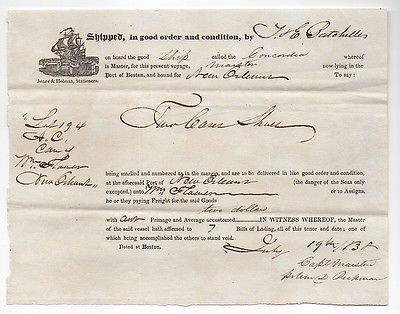 Shipped, in good order and condition, by T. & E. Batchelder
on board the good Ship called the Concordia whereof
Marston
is Master, for this present voyage, now lying in the
Port of Boston, and bound for New Orleans To say:
Jones & Holman, Stationers.
Two Cases Shoes
194
A. C.
Care of
Wm Flower
New Orleans
being marked and numbered as in the margin, and are to be delivered in like good order and condition,
at the aforesaid Port of New Orleans (the danger of the Seas only
excepted,) unto Wm Flower or to Assigns,
he or they paying Freight for the said Goods
two dollars
with out Primage and Average accustomed. IN WITNESS WHEREOF, the Master
of the said vessel hath affirmed to Bills of Lading, all of this tenor and date; one of
which being accomplished the others to stand void.
Dated at Boston. July 19th
Capt Marston